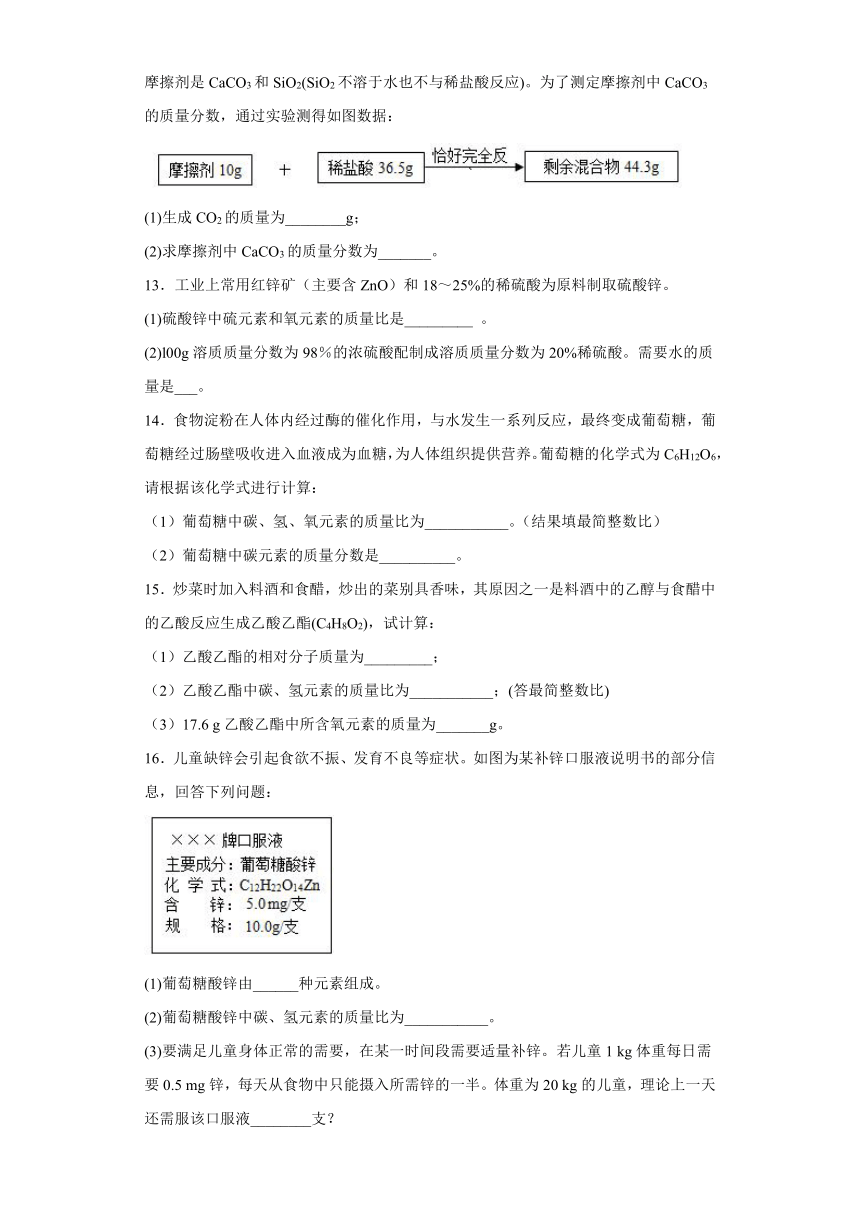 摩擦剂是 CaCO3 和 SiO2(SiO2 不溶于水也不与稀盐酸反应)。为了测定摩擦剂中 CaCO3
的质量分数，通过实验测得如图数据：
摩擦剂10g + 稀盐酸 36.5g 恰好完全反 剩余混合物 44.3g
(1)生成 CO2 的质量为________g；
(2)求摩擦剂中 CaCO3 的质量分数为_______。
13．工业上常用红锌矿（主要含 ZnO）和 18～25%的稀硫酸为原料制取硫酸锌。
(1)硫酸锌中硫元素和氧元素的质量比是_________ 。
(2)l00g 溶质质量分数为 98％的浓硫酸配制成溶质质量分数为 20%稀硫酸。需要水的质
量是___。
14．食物淀粉在人体内经过酶的催化作用，与水发生一系列反应，最终变成葡萄糖，葡
萄糖经过肠壁吸收进入血液成为血糖，为人体组织提供营养。葡萄糖的化学式为 C6H12O6，
请根据该化学式进行计算：
（1）葡萄糖中碳、氢、氧元素的质量比为___________。（结果填最简整数比）
（2）葡萄糖中碳元素的质量分数是__________。
15．炒菜时加入料酒和食醋，炒出的菜别具香味，其原因之一是料酒中的乙醇与食醋中
的乙酸反应生成乙酸乙酯(C4H8O2)，试计算：
（1）乙酸乙酯的相对分子质量为_________；
（2）乙酸乙酯中碳、氢元素的质量比为___________；(答最简整数比)
（3）17.6 g 乙酸乙酯中所含氧元素的质量为_______g。
16．儿童缺锌会引起食欲不振、发育不良等症状。如图为某补锌口服液说明书的部分信
息，回答下列问题：
××× 牌口服液
主要成分：葡萄糖酸锌
化 学 式：C12H22O14Zn
含 锌：5.0mg/支
规 格：10.0g/支
(1)葡萄糖酸锌由______种元素组成。
(2)葡萄糖酸锌中碳、氢元素的质量比为___________。
(3)要满足儿童身体正常的需要，在某一时间段需要适量补锌。若儿童 1 kg 体重每日需
要 0.5 mg 锌，每天从食物中只能摄入所需锌的一半。体重为 20 kg 的儿童，理论上一天
还需服该口服液________支？